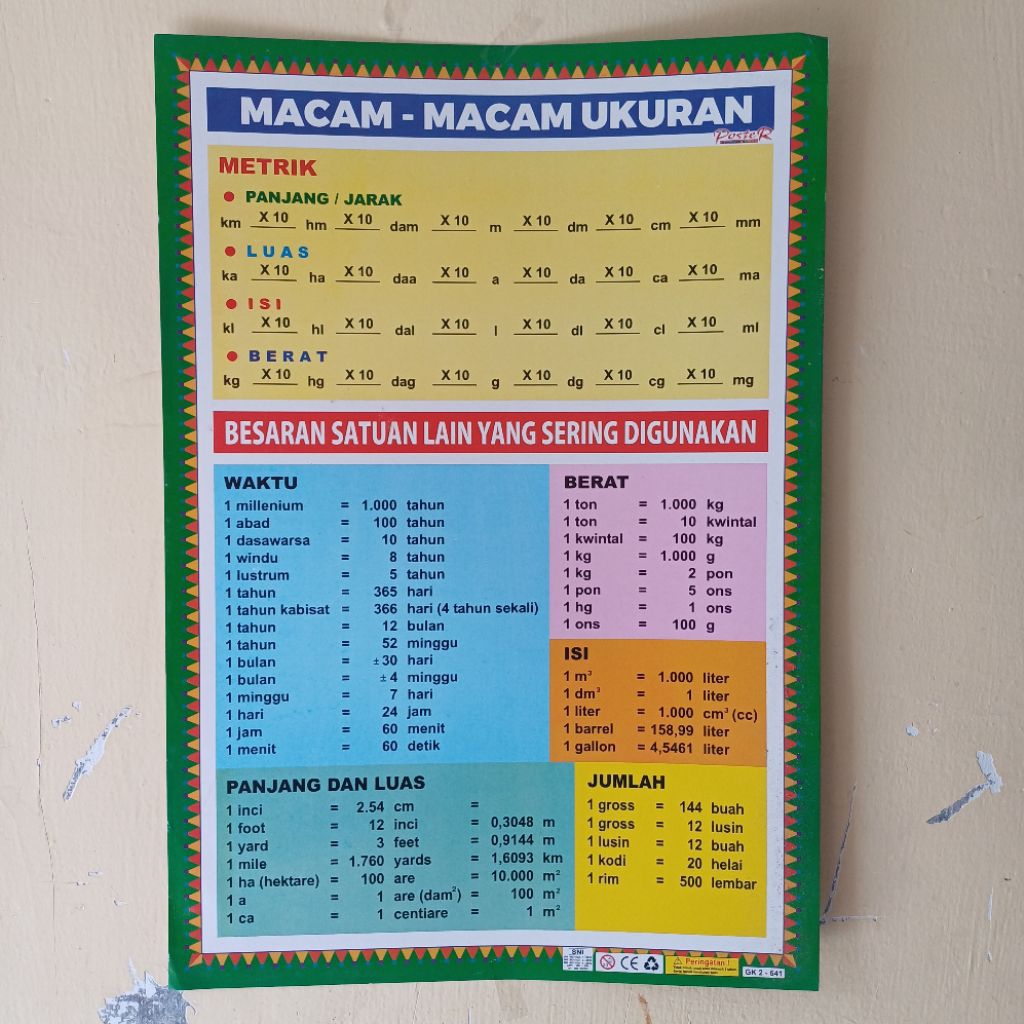 MACAM - MACAM UKURAN
PosteR
METRIK
● PANJANG / JARAK
km X 10 hm X 10 dam X 10 m X 10 dm X 10 cm X 10 mm
● LUAS
ka X 10 ha X 10 daa X 10 a X 10 da X 10 ca X 10 ma
● ISI
kl X 10 hl X 10 dal X 10 l X 10 dl X 10 cl X 10 ml
● BERAT
kg X 10 hg X 10 dag X 10 g X 10 dg X 10 cg X 10 mg
BESARAN SATUAN LAIN YANG SERING DIGUNAKAN
WAKTU
1 millenium = 1.000 tahun
1 abad = 100 tahun
1 dasawarsa = 10 tahun
1 windu = 8 tahun
1 lustrum = 5 tahun
1 tahun = 365 hari
1 tahun kabisat = 366 hari (4 tahun sekali)
1 tahun = 12 bulan
1 tahun = 52 minggu
1 bulan = ±30 hari
1 bulan = ±4 minggu
1 minggu = 7 hari
1 hari = 24 jam
1 jam = 60 menit
1 menit = 60 detik
BERAT
1 ton = 1.000 kg
1 ton = 10 kwintal
1 kwintal = 100 kg
1 kg = 1.000 g
1 kg = 2 pon
1 pon = 5 ons
1 hg = 1 ons
1 ons = 100 g
ISI
1 m³ = 1.000 liter
1 dm³ = 1 liter
1 liter = 1.000 cm³ (cc)
1 barrel = 158,99 liter
1 gallon = 4,5461 liter
PANJANG DAN LUAS
1 inci = 2.54 cm =
1 foot = 12 inci = 0,3048 m
1 yard = 3 feet = 0,9144 m
1 mile = 1.760 yards = 1,6093 km
1 ha (hektare) = 100 are = 10.000 m²
1 a = 1 are (dam²) = 100 m²
1 ca = 1 centiare = 1 m²
JUMLAH
1 gross = 144 buah
1 gross = 12 lusin
1 lusin = 12 buah
1 kodi = 20 helai
1 rim = 500 lembar
SNI
CE
Peringatan !
GK 2 - 541